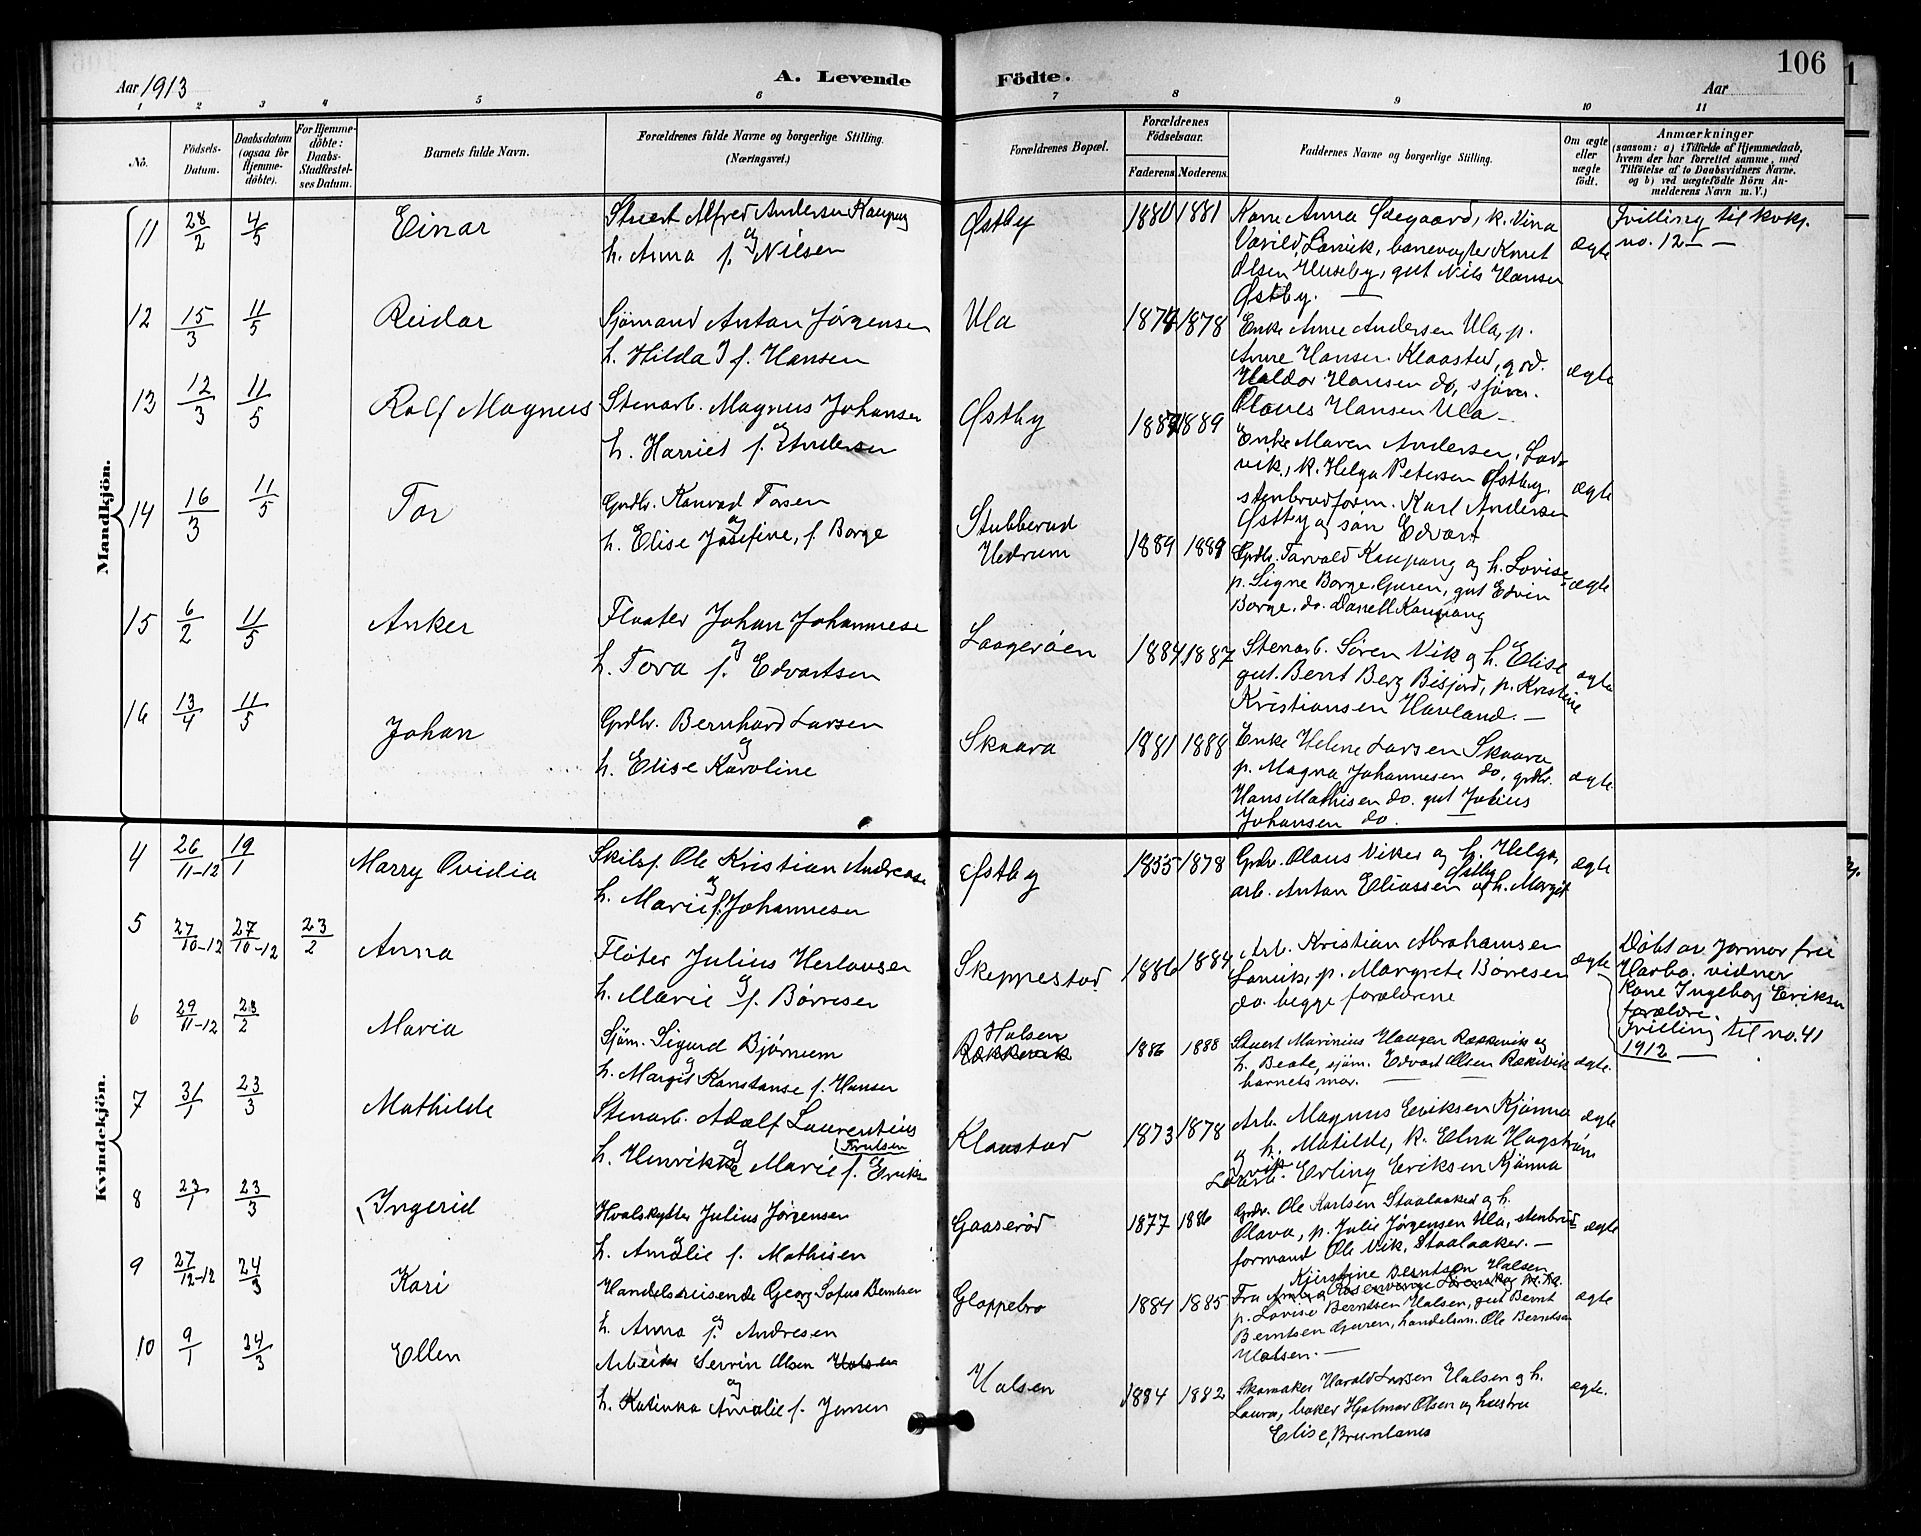 106
Aar 1913
A. Levende Födte.
Aar
1 2 3 4 5 6 7 8 9 10 11
No.
Födsels-Datum.
Daabsdatum (ogsaa for Hjemme-döbte).
For Hjemme-döbte: Daabs-Stadfæstel-ses Datum.
Barnets fulde Navn.
Forældrenes fulde Navne og borgerlige Stilling.
(Næringsvei.)
Forældrenes Bopæl.
Forældrenes Födselsaar.
Faderens Moderens
Faddernes Navne og borgerlige Stilling.
Om ægte eller uægte födt.
Anmærkninger
(saasom: a) i Tilfælde af Hjemmedaab,
hvem der har forrettet samme, med
Tilföielse af to Daabsvidners Navne.
og b) ved uægtefödte Börn An-
melderens Navn m. V.)
Mandkjön.
11 28/2 4/5 Einar
Stuert Alfred Andersen Kaupang
og
h. Anna f. Nilsen
Østby 1880 1881
Kone Anna Odegaard, k. Vina
Varild, Larvik, banevogter Knut
Olsen Huseby, gut Nils Hansen
Østby. —
ægte
Tvilling til kvkj.
no. 12 — —
12 15/3 11/5 Reidar
Sjömand Anton Jörgensen
h. Hilda J f. Hansen
Ula 1878
Enke Anne Andersen Ula, p.
Anne Hansen Klaastad, grd.
Haldor Hansen do, sjöm.
Olaves Hansen Ula —
ægte
13 12/3 11/5 Rolf Magnus
Stenarb. Magnus Johansen
og
h. Harriet f. Andersen
Østby 1889
Enke Maren Andersen, Lar-
vik, k. Helga Petersen Østby,
stenbrudform. Karl Andersen
Østby og sön Edvart
ægte
14 16/3 11/5 Tor
Grdbr. Konrad Torsen
og
h. Elise Josefine, f. Borge
Stubberud
Hedrum
1889
Grdbr. Torvald Kaupang og h. Lovise,
p. Signe Borge, Guren, gut Edvin
Borge, do. Daniell Kaupang
ægte
15 6/2 11/5 Anker
Flaater Johan Johannesen
og
h. Tova f. Edvartsen
Laageröen 1884 1887
Stenarb. Sören Vik og h. Elise
gut. Bernt Berg Bisjord, p. Kristine
Kristiansen Havland. —
ægte
16 13/4 11/5 Johan
Grdbr. Bernhard Larsen
og
h. Elise Karoline
Skaara 1881 1888
Enke Helene Larsen Skaara
p. Magna Johannesen do, grdbr.
Hans Mathisen do. gut Julius
Johansen do.
ægte.
Kvindekjön.
4 26/11-12 19/1 Marry Ovidia
Skilsp. Ole Kristian Andreasen
og
h. Marie f. Johannesen
Østby 1855 1878
Grdbr. Olaus Viker og h. Helga,
Østby
arb. Anton Eliassen og h. Margit
ægte
5 27/10-12 27/10-12 23/2 Anna
Flöter Julius Herlovsen
og
h. Marie f. Börresen
Skeppestad 1886 1884
Arb. Kristian Abrahamsen
Larvik, p. Margrete Börresen
do. begge forældrene
ægte
Döbt av jormor fru
Harbo. vidner
Kone Ingeborg Eriksen
forældre.
Tvilling til no. 41
1912 —
6 29/11-12 23/2 Maria
Sjöm. Sigurd Bjönnum
og
h. Margit Konstanse f. Hansen
Halsen
Rækkevik
1886 1888
Stuert Marinius Haugen Rækkevik og
h. Beate, sjöm. Edvart Olsen Rækkevik
barnets mor. —
ægte.
7 31/1 23/3 Mathilde
Stenarb. Adolf Laurentius
Trulsen
og
h. Henrikke Marie f. Eriksen
Klaastad 1873 1878
Arb. Magnus Eriksen Kjönna
og h. Matilde, k. Elna Hagström
Larvik. Erling Eriksen Kjönna
ægte
8 23/1 23/3 Ingerid
Hvalskytter Julius Jörgensen
og
h. Amalie f. Mathisen
Gaaseröd 1877 1886
Grdbr. Ole Karlsen Staalaaker og h.
Olava, p. Julie Jörgensen Ula, stenbrud
formand Ole Vik, Staalaaker. —
ægte
9 27/12-12 24/3 Kari
Handelsreisende Georg Sofus Berntsen
og
h. Anna f. Andresen
Gloppebro 1884 1885
Kjerstine Berntsen Halsen
Fru
p. Lovise Berntsen Halsen, gut Bernt
Berntsen Guren, handelsm. Ole Berntsen
Halsen. —
ægte
10 9/1 24/3 Ellen
Arbeider Servin Olsen Halsen
og
h. Katinka Amalie f. Jensen
Halsen 1884 1882
Skomaker Harald Larsen Halsen og h.
Laura, baker Hjalmar Olsen og hustru
Elise, Brunlanes
ægte.